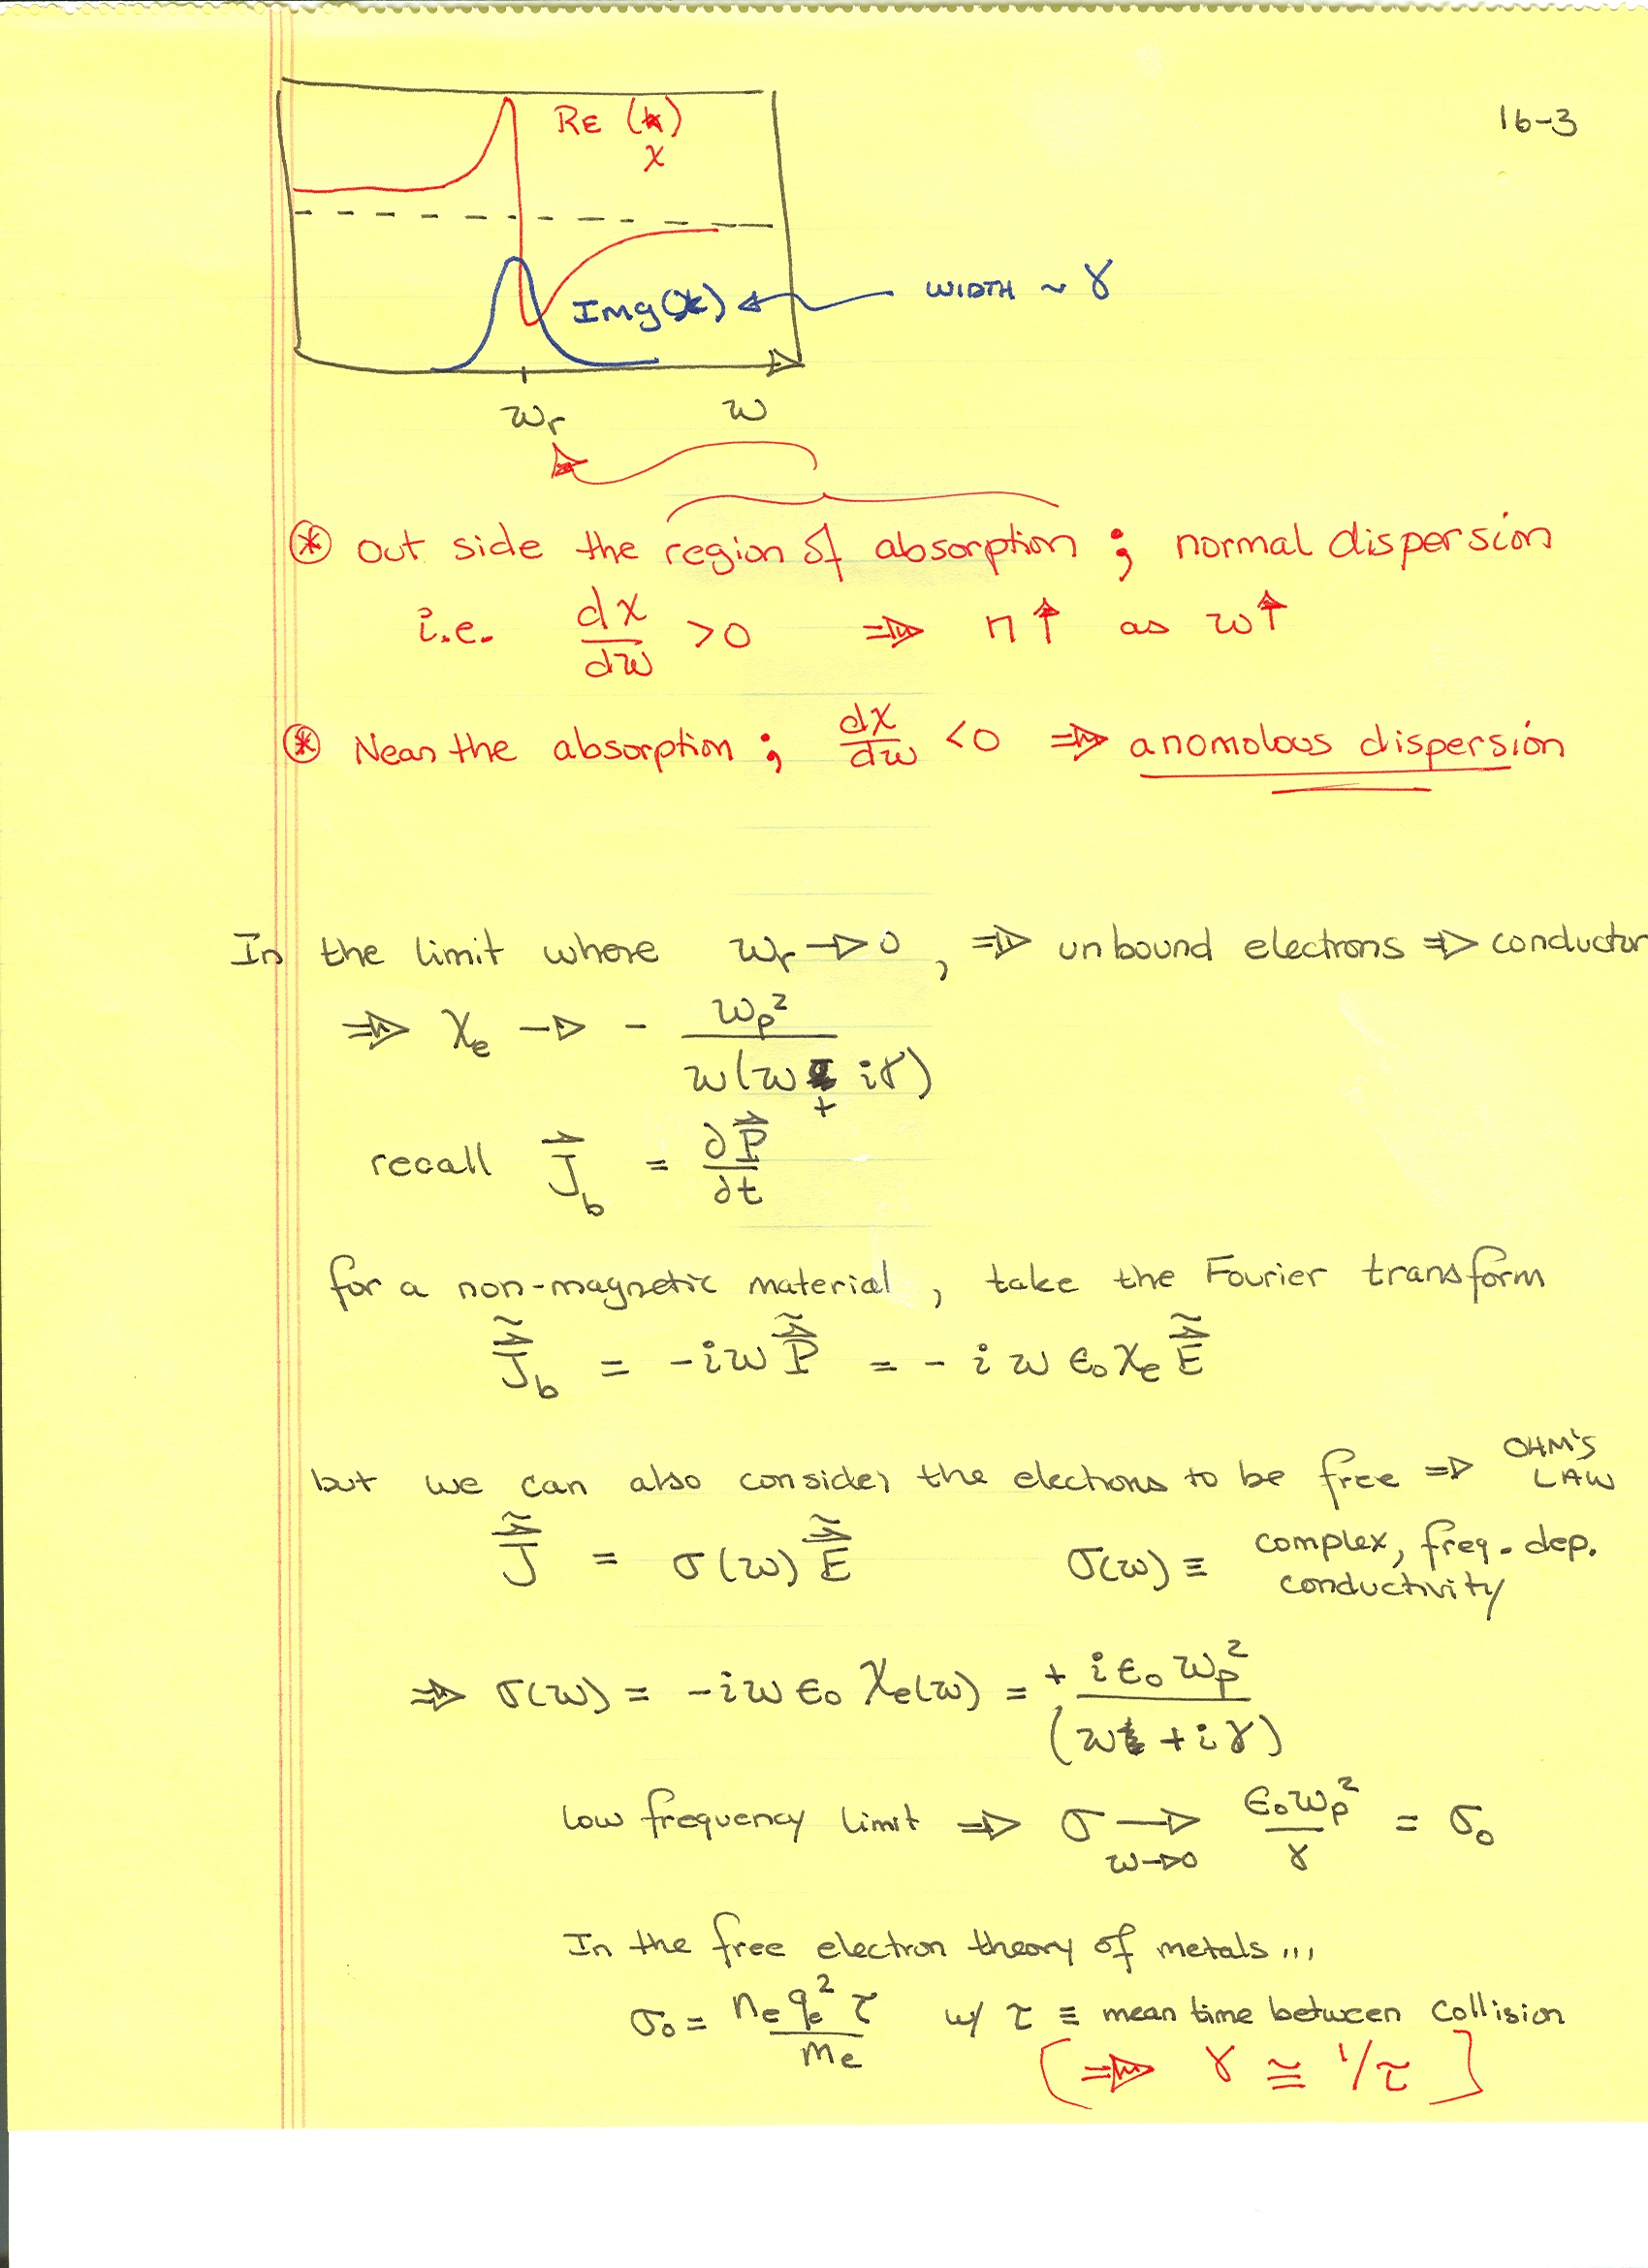 16-3
RE (χ)
χ
Img(χ) ← WIDTH ~ γ
ωr ω
⊛ out side the region of absorption ; normal dispersion
i.e. dχ/dω > 0 ⇒ n↑ as ω↑
⊛ Near the absorption ; dχ/dω < 0 ⇒ anomolous dispersion
In the limit where ωr → 0 , ⇒ unbound electrons ⇒ conductor
⇒ χe → - ωp²/ω(ω + iγ)
recall J⃗b = ∂P⃗/∂t
for a non-magnetic material , take the Fourier transform
J̃⃗b = -iω P̃⃗ = - i ω ε₀ χe Ẽ⃗
but we can also consider the electrons to be free ⇒ OHM'S LAW
J̃⃗ = σ(ω) Ẽ⃗ σ(ω) ≡ complex, freq. dep. conductivity
⇒ σ(ω) = -iω ε₀ χe(ω) = + i ε₀ ωp²/(ω + iγ)
low frequency limit ⇒ σ → ε₀ωp²/γ = σ₀
ω→0
In the free electron theory of metals...
σ₀ = ne qe² τ/me w/ τ ≡ mean time between collision
[⇒ γ ≅ 1/τ]